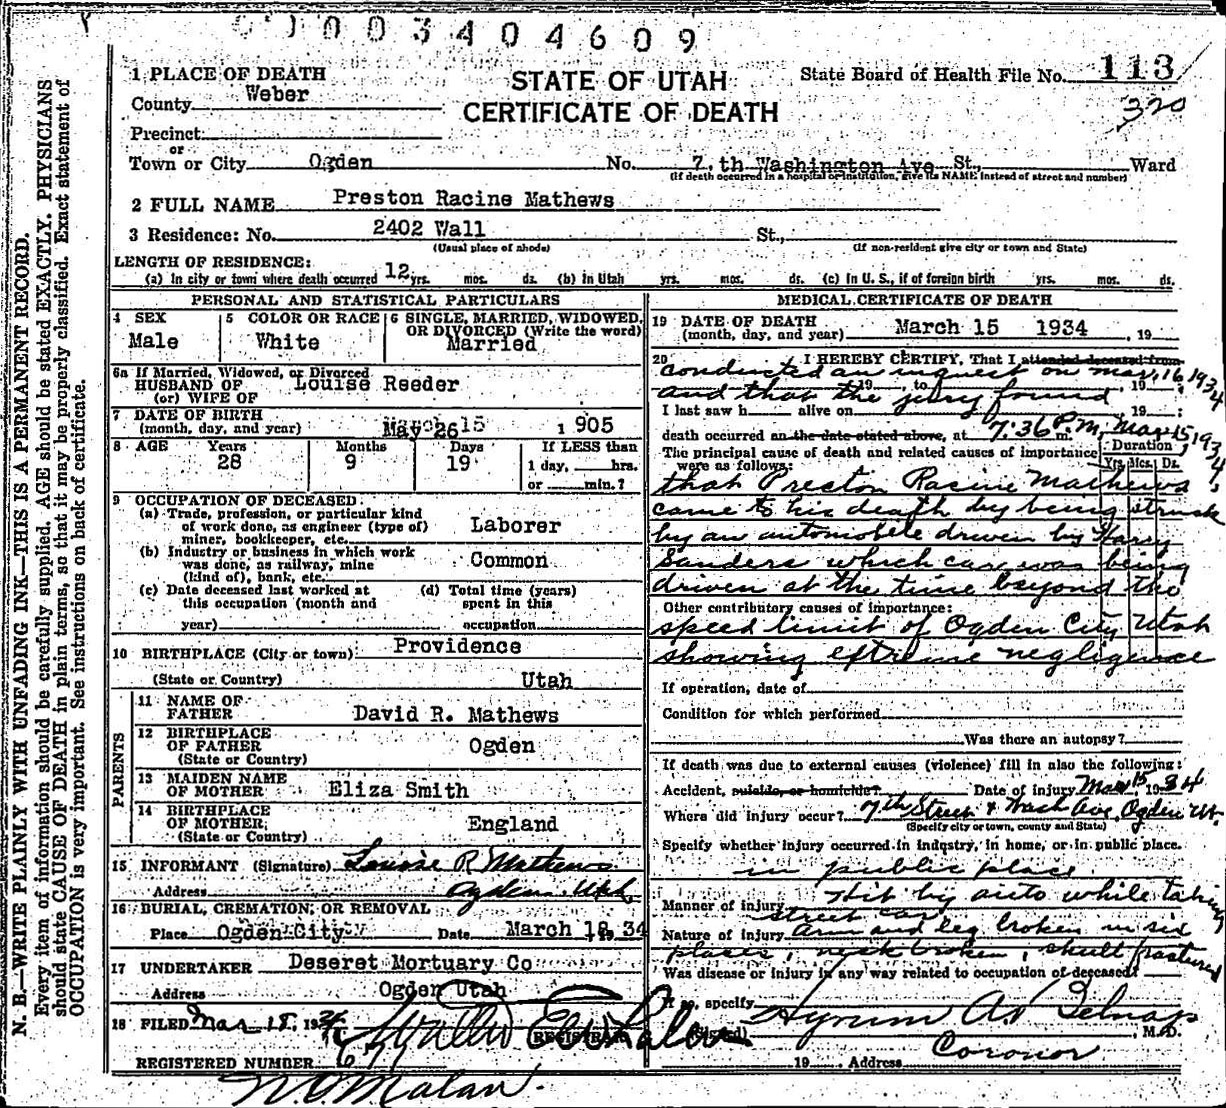 003404609
STATE OF UTAH
CERTIFICATE OF DEATH
State Board of Health File No. 113
320
1 PLACE OF DEATH
County Weber
Precinct
or
Town or City Ogden No. 7.th Washington Ave St., Ward
(If death occurred in a hospital or institution, give its NAME instead of street and number)
2 FULL NAME Preston Racine Mathews
3 Residence: No. 2402 Wall St.,
(Usual place of abode) (If non-resident give city or town and State)
LENGTH OF RESIDENCE:
(a) In city or town where death occurred 12 yrs. mos. ds. (b) In Utah yrs. mos. ds. (c) In U. S., if of foreign birth yrs. mos. ds.
PERSONAL AND STATISTICAL PARTICULARS
4 SEX
Male
5 COLOR OR RACE
White
6 SINGLE, MARRIED, WIDOWED, OR DIVORCED (Write the word)
Married
6a If Married, Widowed, or Divorced
HUSBAND OF Louise Reeder
(or) WIFE OF
7 DATE OF BIRTH
(month, day, and year) May 26 1905
8 AGE Years Months Days If LESS than
28 9 19 1 day, hrs.
or min.?
9 OCCUPATION OF DECEASED:
(a) Trade, profession, or particular kind
of work done, as engineer (type of)
miner, bookkeeper, etc. Laborer
(b) Industry or business in which work
was done, as railway, mine
(kind of), bank, etc. Common
(c) Date deceased last worked at
this occupation (month and
year)
(d) Total time (years)
spent in this
occupation
10 BIRTHPLACE (City or town) Providence
(State or Country) Utah
PARENTS
11 NAME OF
FATHER David R. Mathews
12 BIRTHPLACE
OF FATHER Ogden
(State or Country)
13 MAIDEN NAME
OF MOTHER Eliza Smith
14 BIRTHPLACE
OF MOTHER England
(State or Country)
15 INFORMANT (Signature) Louise R. Mathews
Address Ogden, Utah
16 BURIAL, CREMATION, OR REMOVAL
Place Ogden City Date March 18 19 34
17 UNDERTAKER Deseret Mortuary Co
Address Ogden Utah
18 FILED Mar 18, 1934
REGISTRAR
REGISTERED NUMBER 67
MEDICAL CERTIFICATE OF DEATH
19 DATE OF DEATH
(month, day, and year) March 15 1934, 19
20 I HEREBY CERTIFY, That I attended deceased from
conducted an inquest on Mar. 16, 1934
19 , to , 19 ;
and that the jury found
I last saw h alive on , 19 ;
death occurred on the date stated above, at 7:36 P.M. m. Mar 15, 1934
The principal cause of death and related causes of importance
were as follows:
Duration
Yrs. Mos. Ds.
that Preston Racine Mathews
came to his death by being struck
by an automobile driven by Harry
Sanders which car was being
driven at the time beyond the
Other contributory causes of importance:
speed limit of Ogden City Utah
showing extreme negligence
If operation, date of
Condition for which performed
Was there an autopsy?
If death was due to external causes (violence) fill in also the following:
Accident, suicide, or homicide? Date of injury Mar 15 1934
Where did injury occur? 7th Street & Wash Ave, Ogden Ut.
(Specify city or town, county and State)
Specify whether injury occurred in industry, in home, or in public place.
in public place
Manner of injury Hit by auto while taking
street car
Nature of injury Arm and leg broken in six
places, neck broken, skull fractured
Was disease or injury in any way related to occupation of deceased?
If so, specify
(Signed) Hyrum A. Belnap M.D.
19 . Address Coronor
N. O. Malan.
N. B.—WRITE PLAINLY WITH UNFADING INK—THIS IS A PERMANENT RECORD.
Every item of information should be carefully supplied. AGE should be stated EXACTLY. PHYSICIANS
should state CAUSE OF DEATH in plain terms, so that it may be properly classified. Exact statement of
OCCUPATION is very important. See instructions on back of certificate.